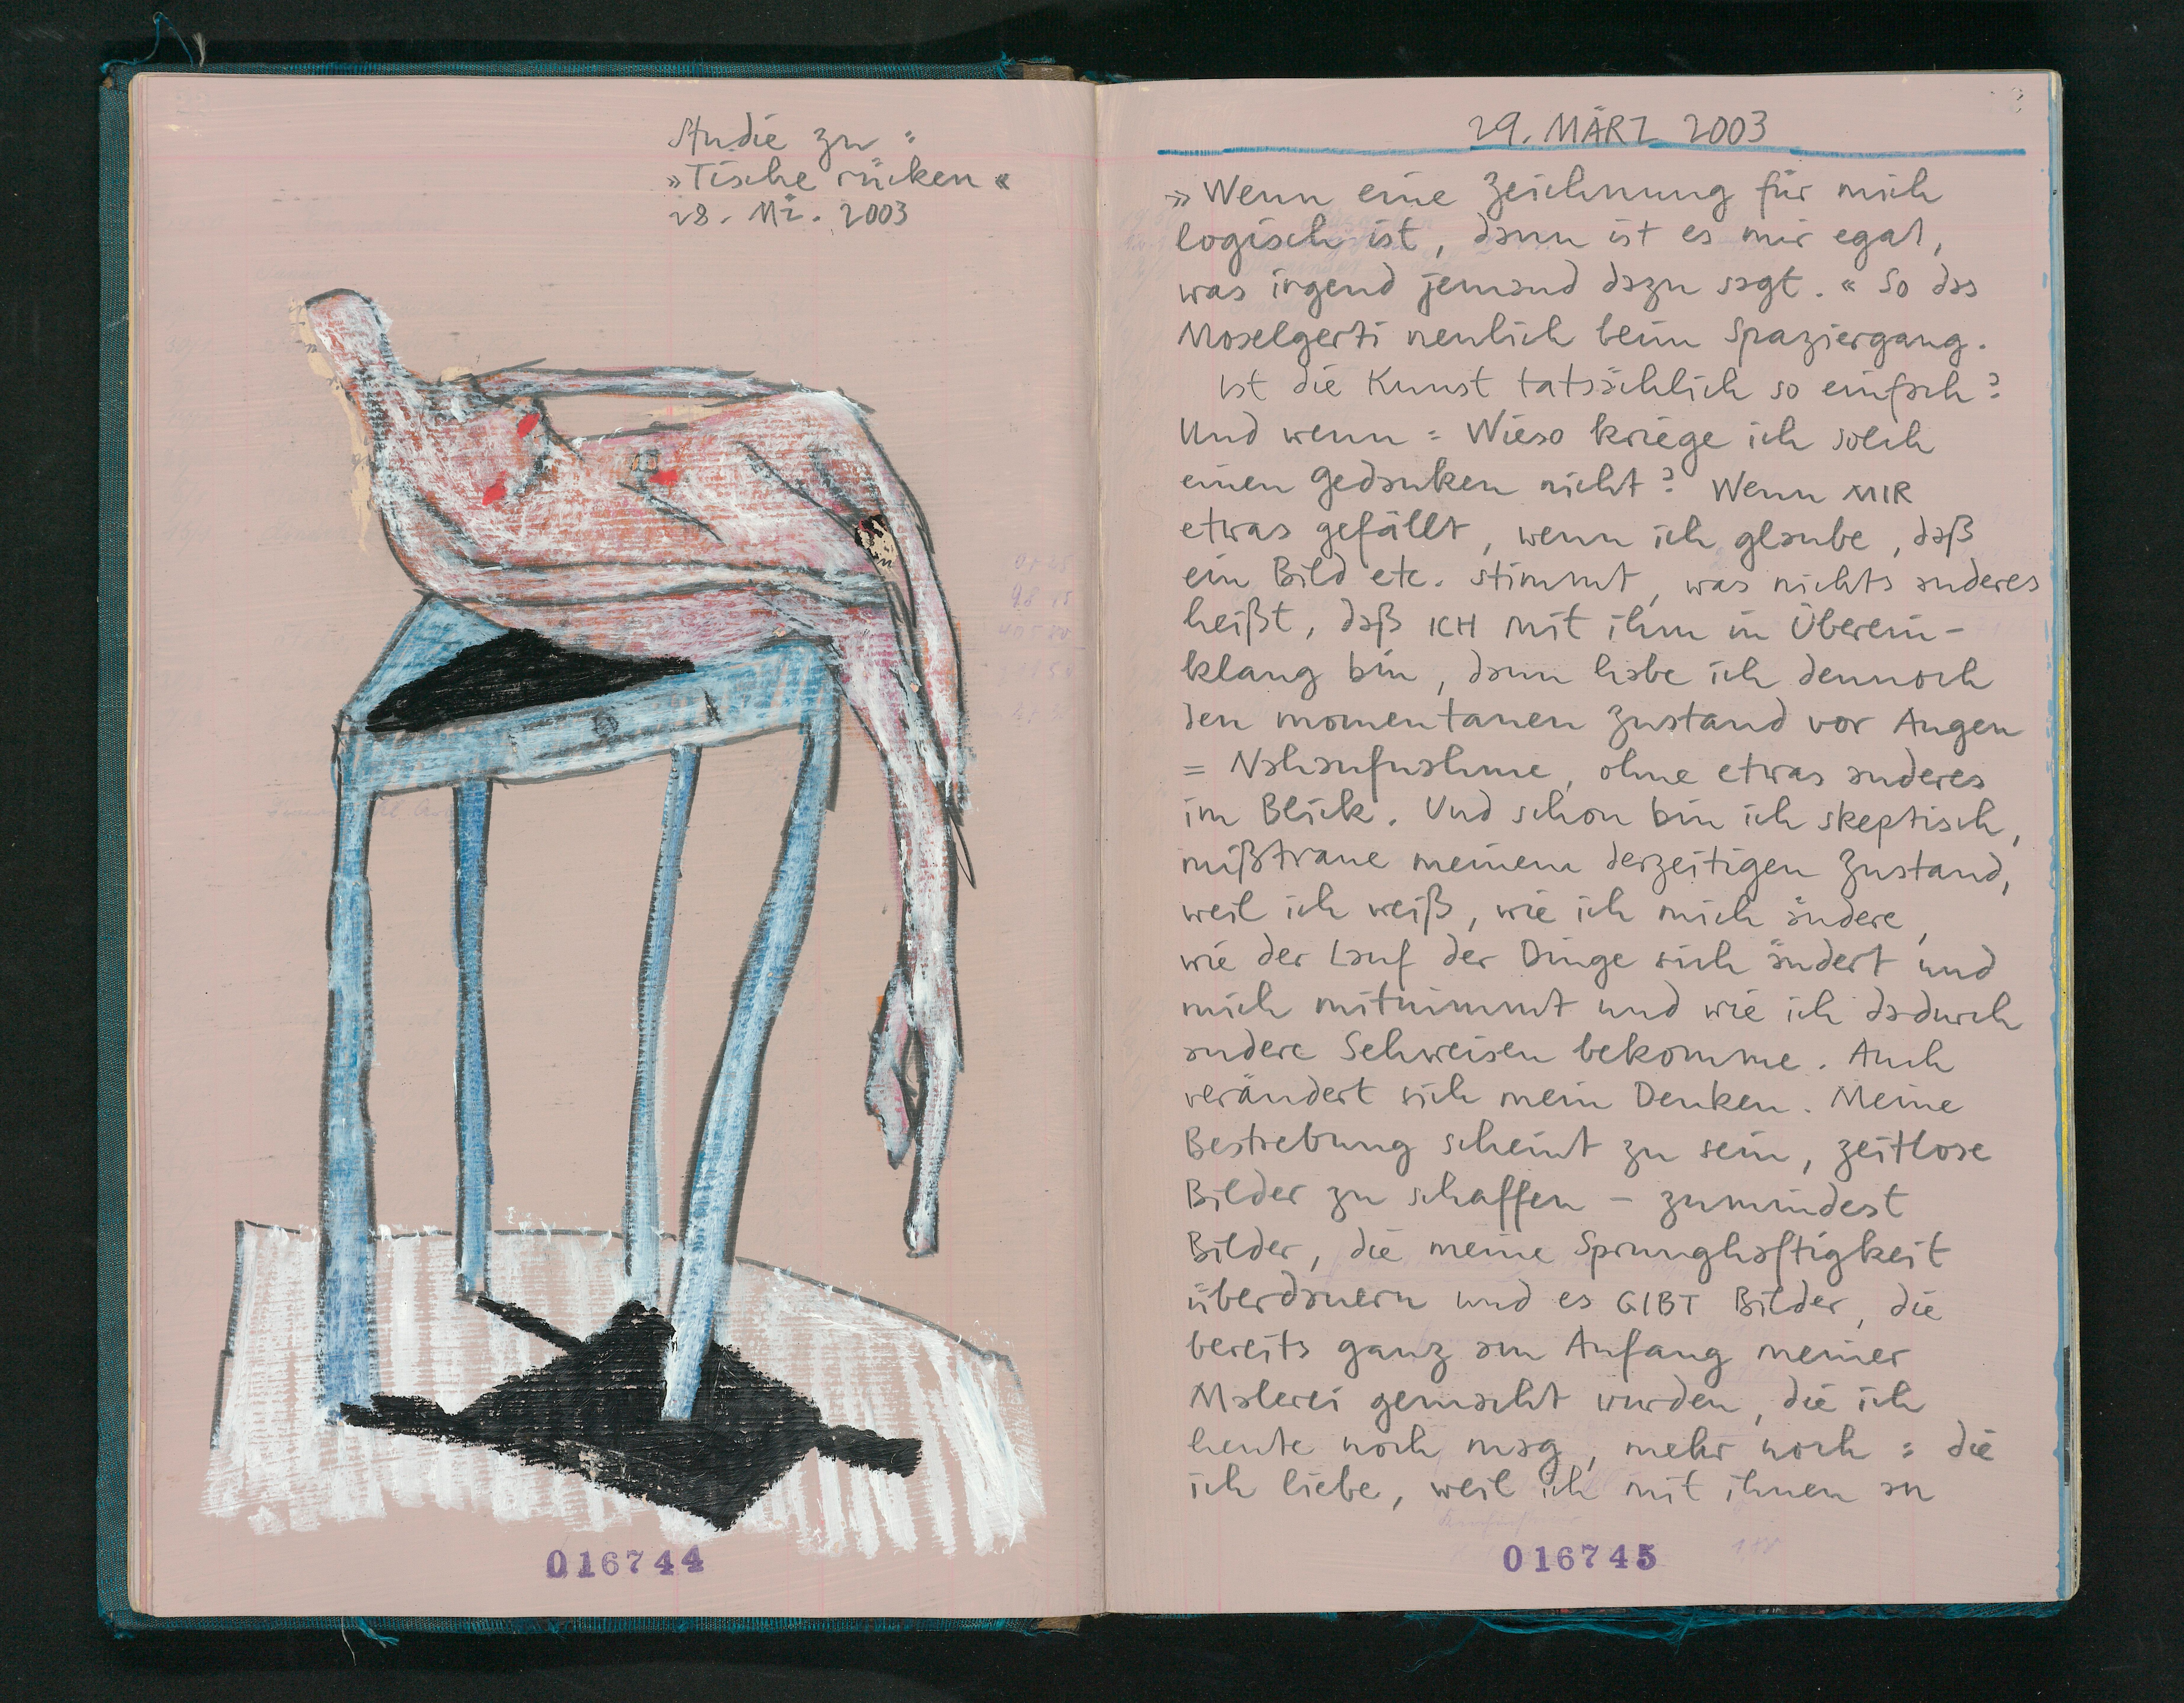 Studie zu :
»Tische rücken«
28. Mä. 2003
016744
29. MÄRZ 2003
»Wenn eine Zeichnung für mich
logisch ist, dann ist es mir egal,
was irgend jemand dazu sagt.« So das
Moselgerti neulich beim Spaziergang.
Ist die Kunst tatsächlich so einfach?
Und wenn : Wieso kriege ich solch
einen Gedanken nicht? Wenn MIR
etwas gefällt, wenn ich glaube, daß
ein Bild etc. stimmt, was nichts anderes
heißt, daß ICH mit ihm in Überein-
klang bin, dann habe ich dennoch
den momentanen Zustand vor Augen
= Nahaufnahme, ohne etwas anderes
im Blick. Und schon bin ich skeptisch,
mißtraue meinem derzeitigen Zustand,
weil ich weiß, wie ich mich ändere,
wie der Lauf der Dinge sich ändert und
mich mitnimmt und wie ich dadurch
andere Sehweisen bekomme. Auch
verändert sich mein Denken. Meine
Bestrebung scheint zu sein, zeitlose
Bilder zu schaffen – zumindest
Bilder, die meine Sprunghaftigkeit
überdauern und es GIBT Bilder, die
bereits ganz am Anfang meiner
Malerei gemacht wurden, die ich
heute noch mag, mehr noch : die
ich liebe, weil ich mit ihnen an
016745